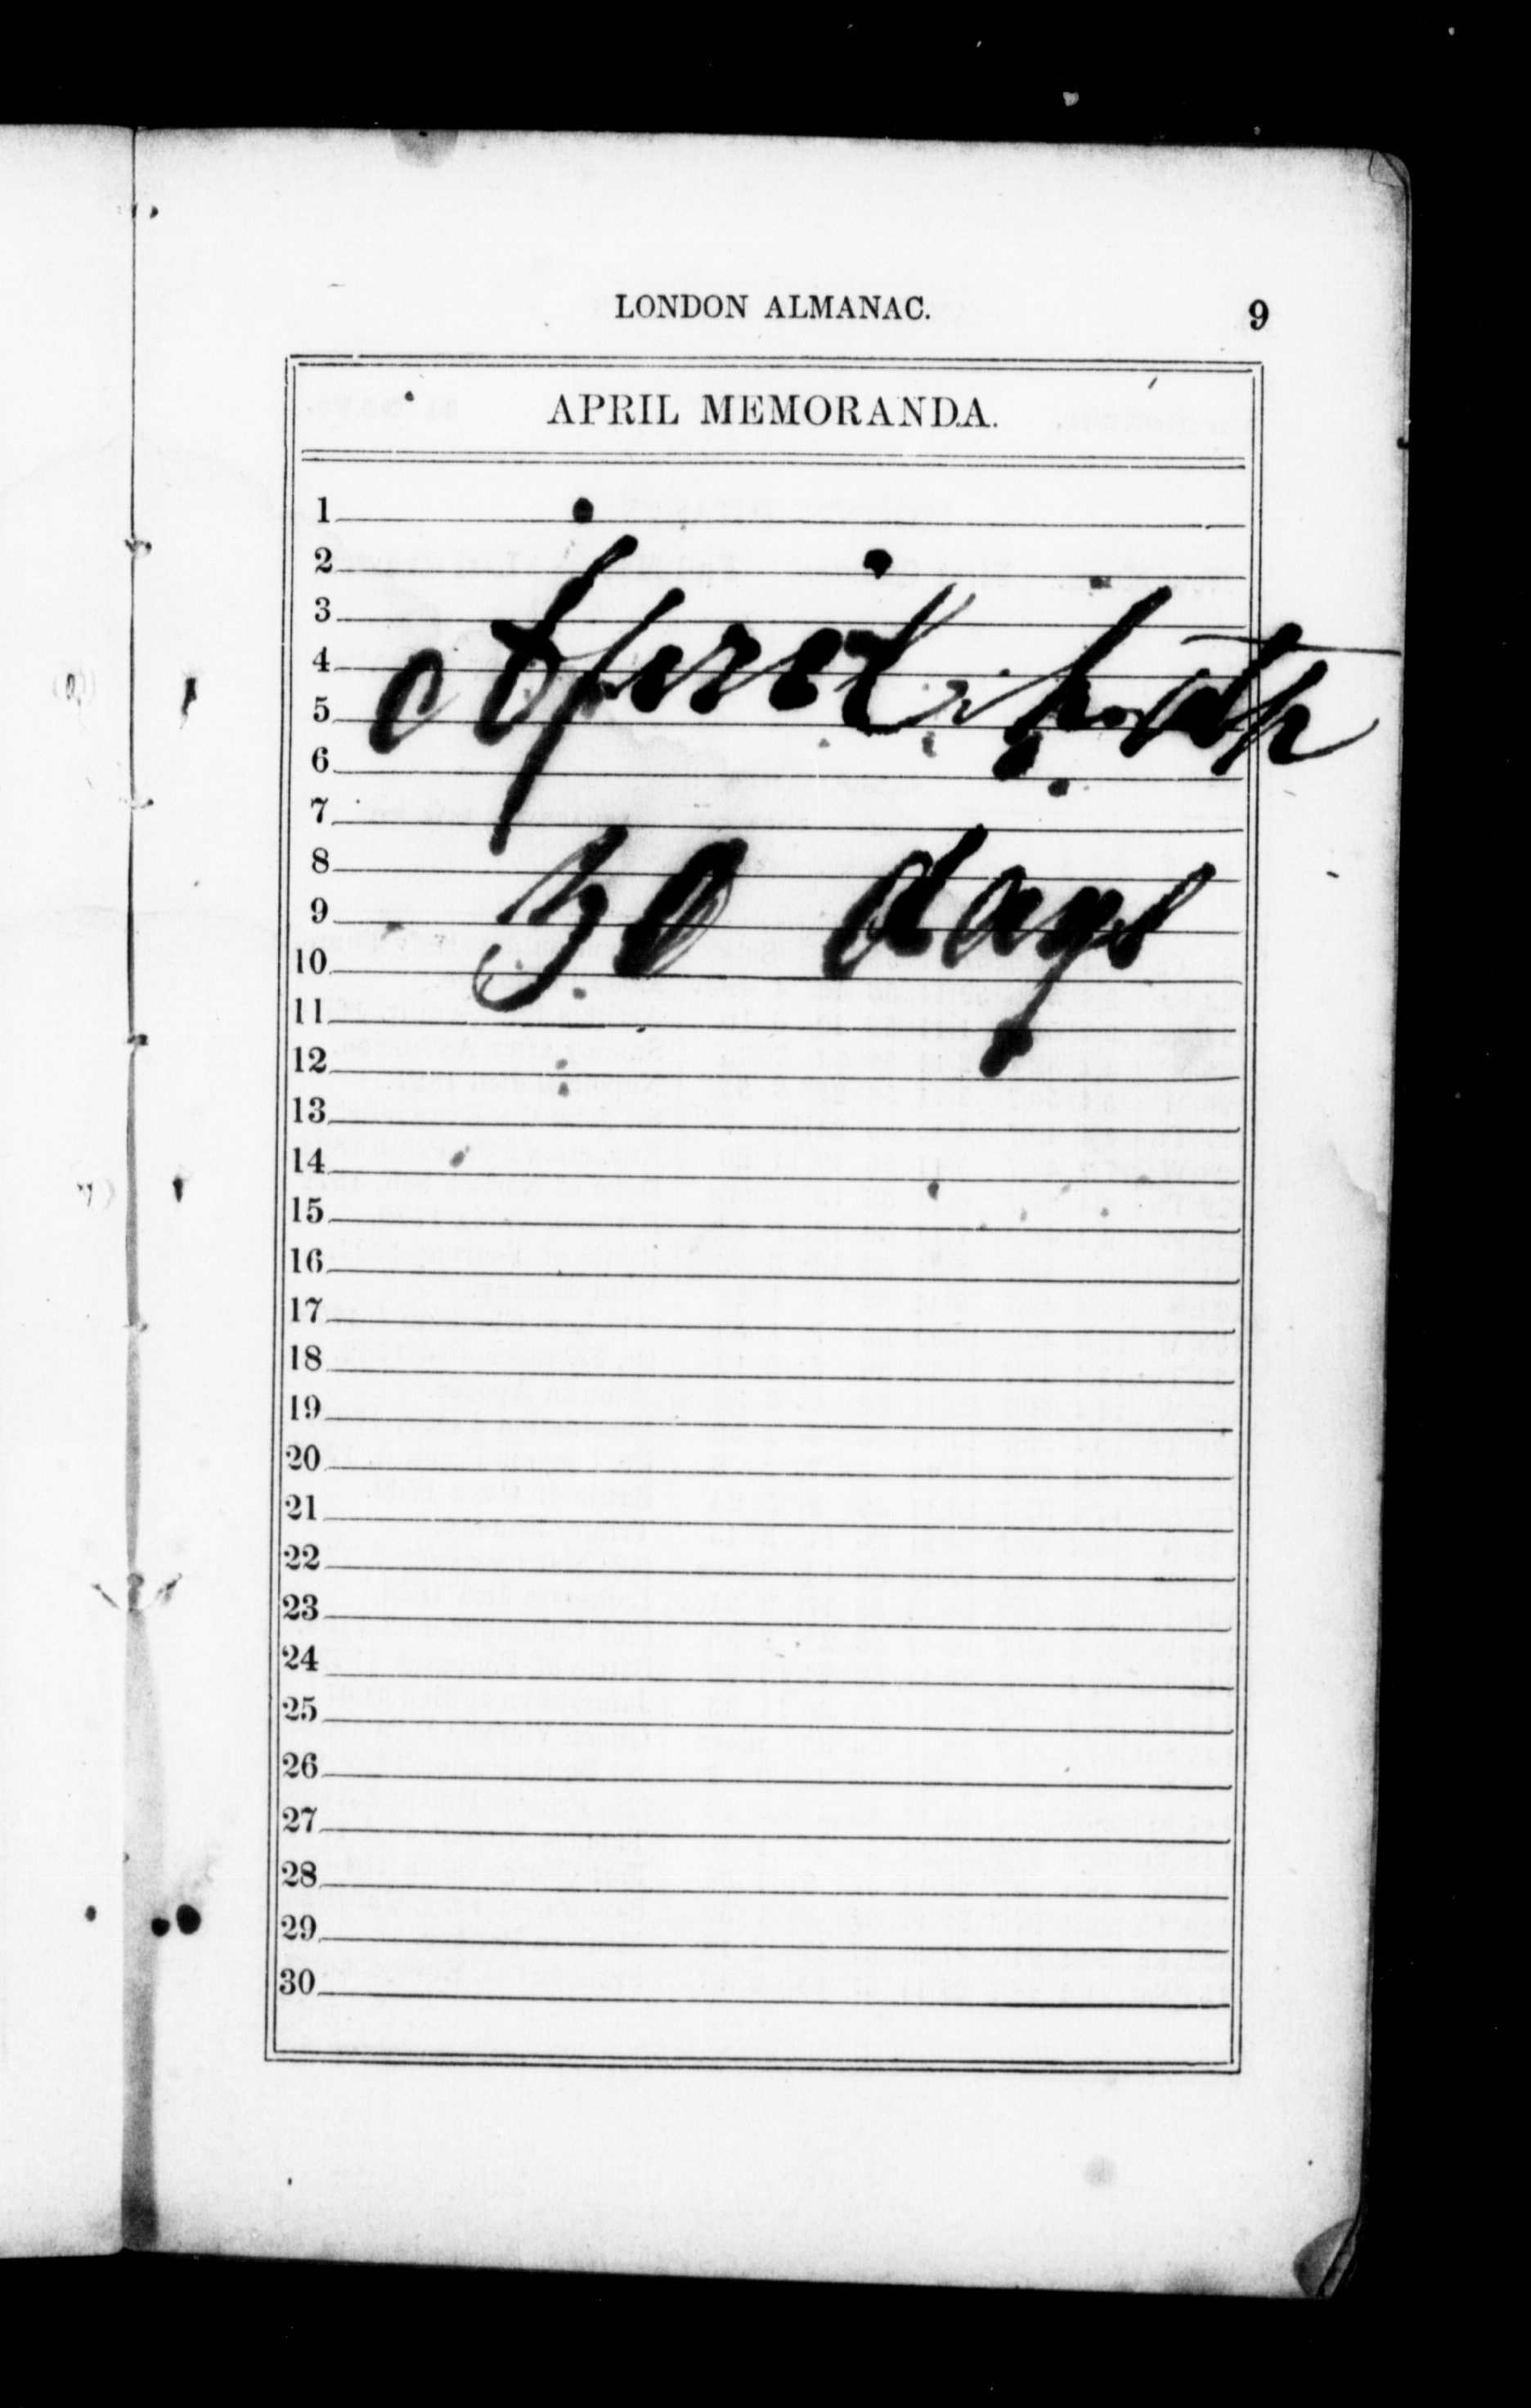 LONDON ALMANAC. 9
APRIL MEMORANDA.
1
2
3
4
April hath
5
6
7
8
30 days
9
10
11
12
13
14
15
16
17
18
19
20
21
22
23
24
25
26
27
28
29
30